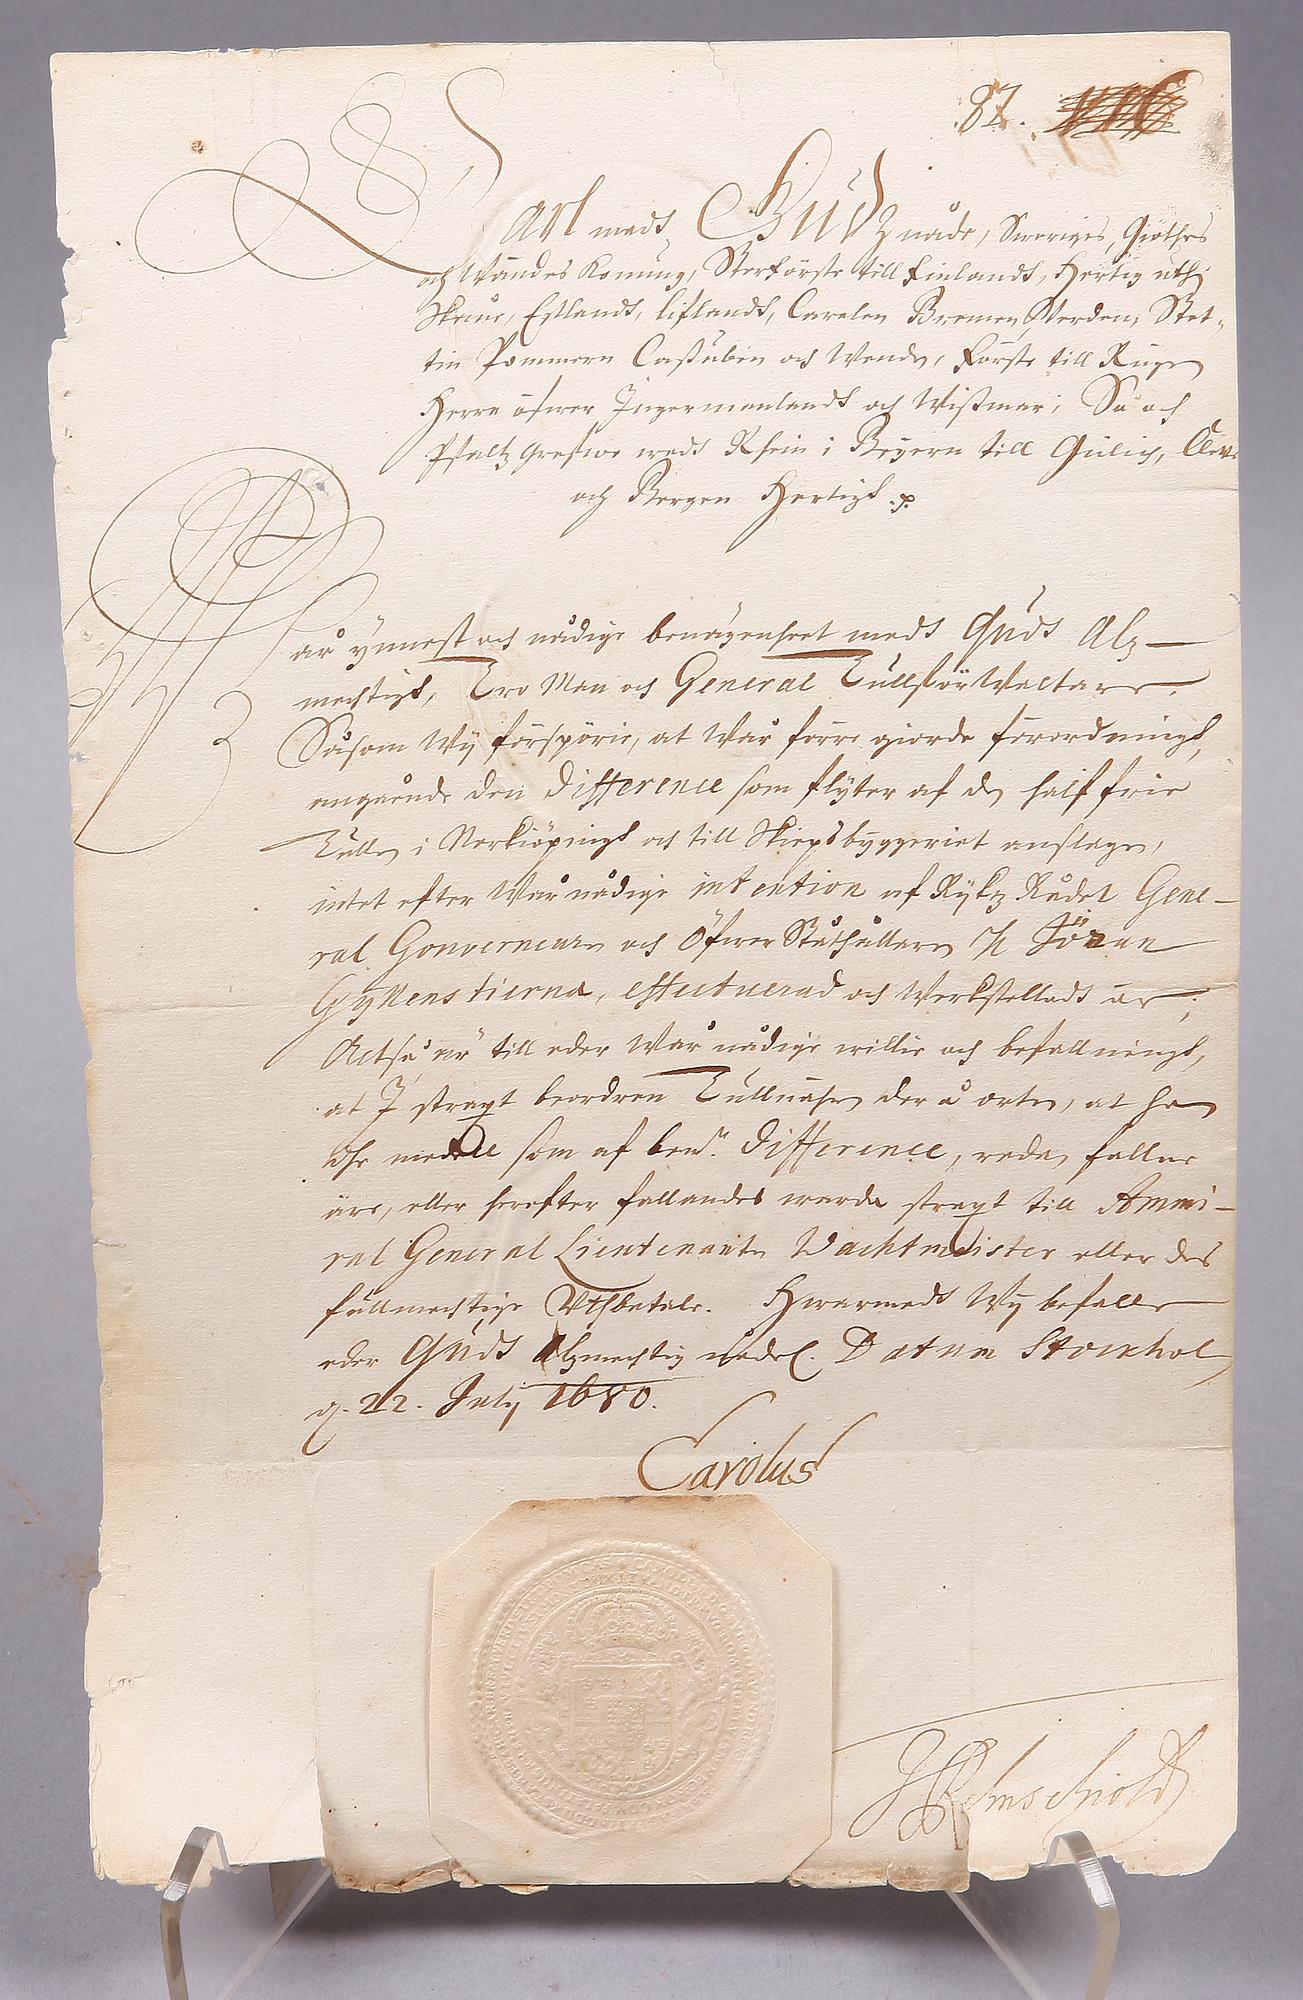 87.
Carl medt Gudz nåde, Sweriges, Giöthes
och Wändes Konung, Storförste till Finlandt, Hertig uthi
Skåne, Estlandt, Liflandt, Carelen Bremen Verden, Stet-
tin Pommern Caßuben och Wenden, Förste till Rügen
Herre öfwer Ingermanlandt och Wißmar; Så och
Pfaltz Grefwe widt Rhein i Beyern till Gülich, Cleve
och Bergen Hertigh
Wår ynnest och nådige benägenheet medt Gudt Alz-
mechtigh, Tro Man och General Tullförwaltare.
Såsom Wij förspörie, at Wår förre giorde förordningh,
angående den Difference som flyter af de half frie
Tullen i Norkiöpingh och till Skiepsbyggeriet anslagen,
intet efter Wår nådige intention af Rykz Rådet Gene-
ral Gouverneuren och Öfwer Ståthållaren H Jöran
Gyllenstierna, effectuerad och Werkstelladt är;
Altså är till eder Wår nådige willie och befallningh,
at I straxt beordren Tullnähren der å orten, at han
the medell som af bem. Difference, reda fallne
äre, eller herefter fallandes warda straxt till Ammi-
ral General Lieutenanten Wachtmeister eller des
fullmechtige Uthbetale. Hwarmedt Wij befalle
eder Gudt Alzmechtig nådel. Datum Stockholm
d. 22. Julij 1680.
Carolus